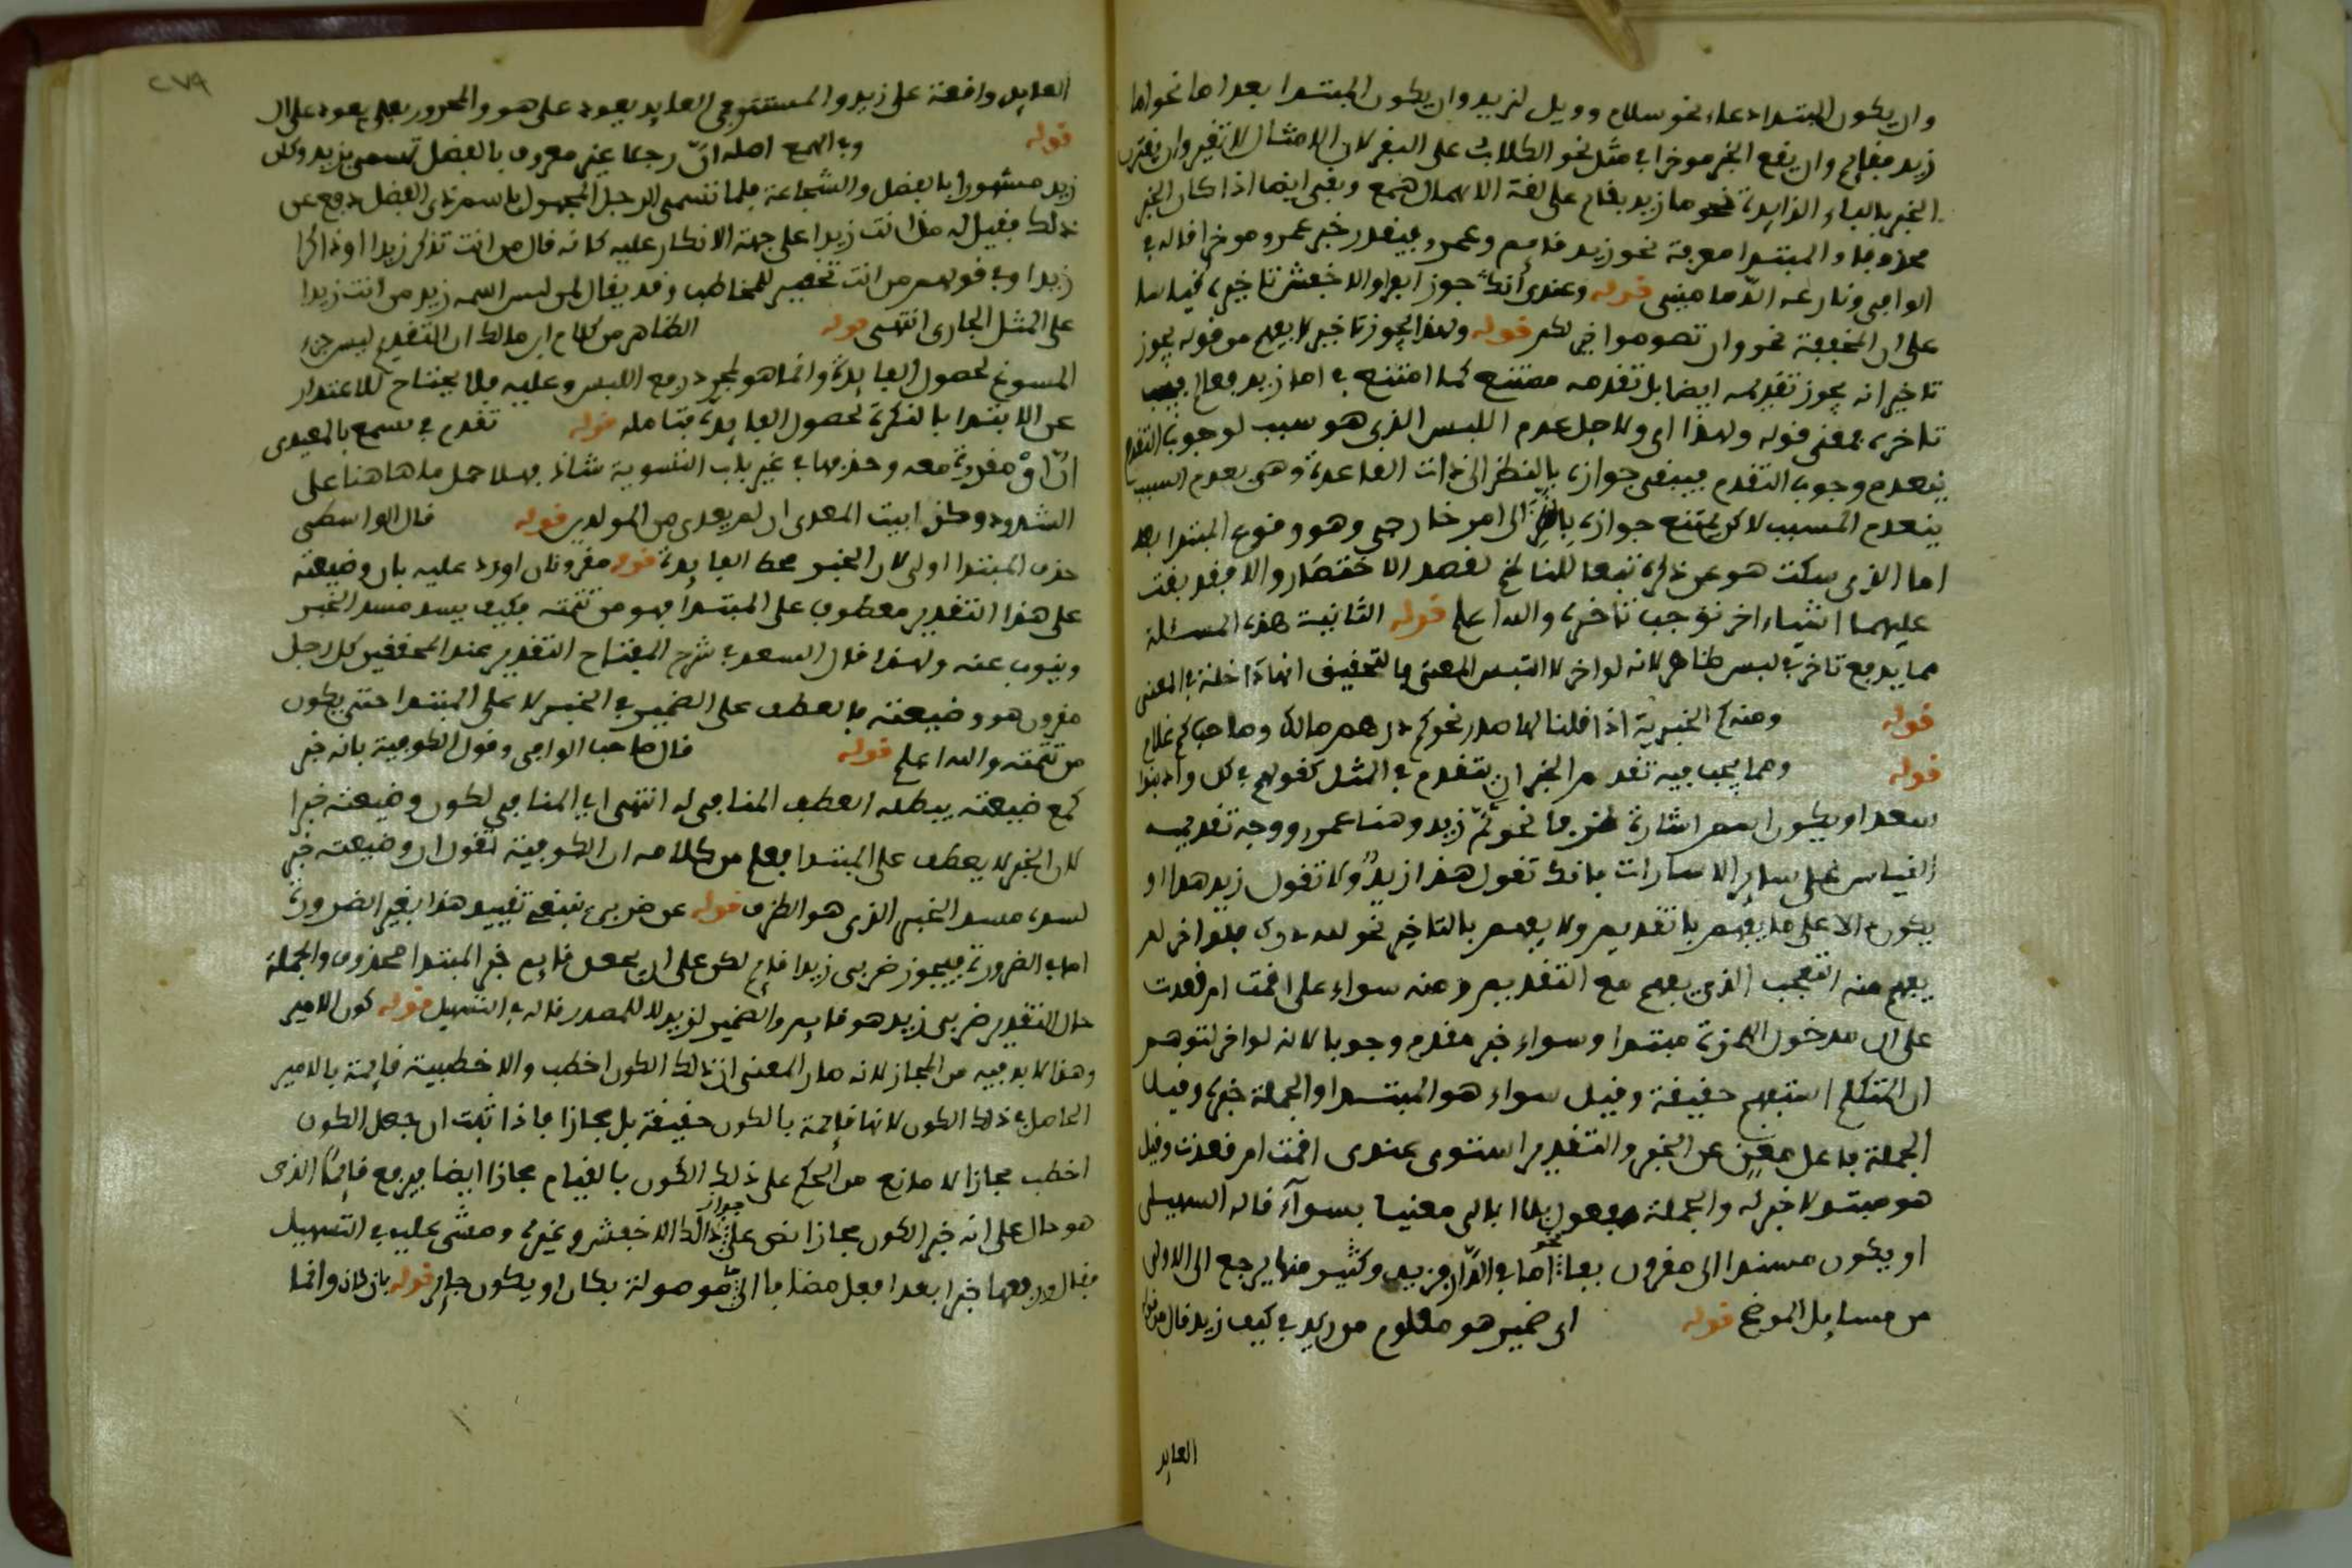 وان يكون المبتدا دعاء نحو سلام وويل لزيد وان يكون المبتدا بعد اما نحو اما
زيد فقايم وان يقع الخبر موخرا في مثل نحو الكلاب على البقر لان الامثال لا تغير وان يقترن
الخبر بالباء الزايدة نحو ما زيد بقايم على لغة الاهمال وبقي ايضا اذا كان الخبر
محذوفا والمبتدا معرفة نحو زيد قايم وعمرو فيقدر خبر عمرو موخرا قاله في
الوافي ونازعه الدماميني قوله وعندي أنك جوز الفراء والاخفش تاخيره قياسا
على ان المخففة نحو وان تصوموا خير لكم قوله ولهذا يجوز تاخيره لا يفهم من قوله يجوز
تاخيره انه يجوز تقديمه ايضا بل تقدمه ممتنع كما امتنع في اما زيد فقايم فيجب
تاخره بمعنى قوله ولهذا اي ولاجل عدم اللبس الذي هو سبب لوجوب التقدم
ينعدم وجوب التقدم فيبقى جوازه بالنظر الى ذات القاعدة وهي بعدم السبب
ينعدم المسبب لاكن يمتنع جوازه بالنظر الى امر خارجي وهو وقوع المبتدا بعد
اما الذي سكت هو عن ذكره تبعا للناظم لقصد الاختصار والا فقد بقت
عليهما اشياء اخر توجب تاخره والله اعلم قوله الثانية هذه المسئلة
مما يدفع تاخره لبس ظاهر لانه لو اخر لالتبس المعنى فالتحقيق انها داخلة في المعنى
قوله ومنه كم الخبرية اذا قلنا لها صدر نحو كم درهم مالك وصاحب كم غلام
قوله ومما يجب فيه تقديم الخبر ان يتقدم في المثل كقولهم في كل واد بنوا
سعد او يكون اسم اشارة ظرفا نحو ثم زيد وهنا عمرو ووجه تقديمه
القياس على ساير الاشارات فانك تقول هذا زيد ولا تقول زيد هذا او
يكون دالا على ما يفهم بالتقديم ولا يفهم بالتاخير نحو لله درك فلو اخر لم
يفهم منه التعجب الذي يفهم مع التقديم ومنه سواء علي اقمت ام قعدت
على ان مدخول الهمزة مبتدا وسواء خبر مقدم وجوبا لانه لو اخر لتوهم
ان المتكلم استفهم حقيقة وقيل سواء هو المبتدا والجملة خبره وقيل
الجملة فاعل مغن عن الخبر والتقدير استوى عندي اقمت ام قعدت وقيل
هو مبتدا لا خبر له والجملة مفعول بلا ابالي معنيا بسوآء قاله السهيلي
او يكون مسندا الى مقرون بفا نحو اما في الدار فزيد وكثير منها يرجع الى الاولى
من مسايل الموضح قوله اي ضمير هو معلوم من زيد في كيف زيد قال
العايد
٢٧٩
العايد واقعة على زيد والمستتر في العايد يعود على هو والمجرور بعلى يعود على ال
قوله وفي الهمع اصله ان رجلا غير معروف بالفضل تسمى بزيد وكان
زيد مشهورا بالفضل والشجاعة فلما تسمى الرجل المجهول باسم ذي الفضل دفع عن
ذلك فقيل له من انت زيدا على جهة الانكار عليه كانه قال من انت تذكر زيدا او ذاكرا
زيدا وفي قولهم من انت تحقير للمخاطب وقد يقال لمن ليس اسمه زيد من انت زيدا
على المثل الجاري انتهى قوله الظاهر من كلام ابن مالك ان التقديم ليس جزء
المسوغ لحصول الفايدة وانما هو لمجرد رفع اللبس وعليه فلا يحتاج للاعتذار
عن الابتدا بالنكرة لحصول الفايدة فتامله قوله تقدم في تسمع بالمعيدي
ان مقدرة معه وحذفها في غير باب التسوية شاذ فهلا حمل ما هاهنا على
الشذوذ وظن ابيت المعدى ان لم يعدى من المولدين قوله قال الواسطي
حذف المبتدا اولى لان الخبر محط الفايدة قوله مقرونان اورد عليه بان وضيعته
على هذا التقدير معطوف على المبتدا فهو من تتمته فكيف يسد مسد الخبر
وينوب عنه ولهذا قال السعد في شرح المفتاح التقدير عند المحققين كل رجل
مقرون هو وضيعته بالعطف على الضمير في الخبر لا على المبتدا حتى يكون
من تتمته والله اعلم قوله قال صاحب الوافي وقول الكوفية بانه خبر
كمع ضيعته يبطله العطف المنافي له انتهى اي المنافي لكون وضيعته خبرا
لان الخبر لا يعطف على المبتدا فعلم من كلامه ان الكوفية تقول ان وضيعته خبر
لسده مسد الخبر الذي هو الظرف قوله عن ضربي ينبغي تقييد هذا بغير الضرورة
اما في الضرورة فيجوز ضربي زيدا قايم لكن على ان يجعل قايم خبر المبتدا محذوف والجملة
حال التقدير ضربي زيد هو قايم والضمير لزيد لا للمصدر قاله في التسهيل قوله كون الامير
وهذا لا بد فيه من المجاز لانه صار المعنى ان ذلك الكون اخطب والاخطبية قايمة بالامير
الحاصل في ذلك الكون لا انها قايمة بالكون حقيقة بل مجازا فاذا ثبت ان جعل الكون
اخطب مجازا لا مانع من الحكم على ذلك الكون بالقيام مجازا ايضا فيرفع قايما الذي
هو حال على انه خبر الكون مجازا نص على جواز ذالك الاخفش وغيره ومشى عليه في التسهيل
فقال ورفعها خبرا بعد افعل مضافا الى ما موصولة بكان او يكون جايز قوله بان كان وانما